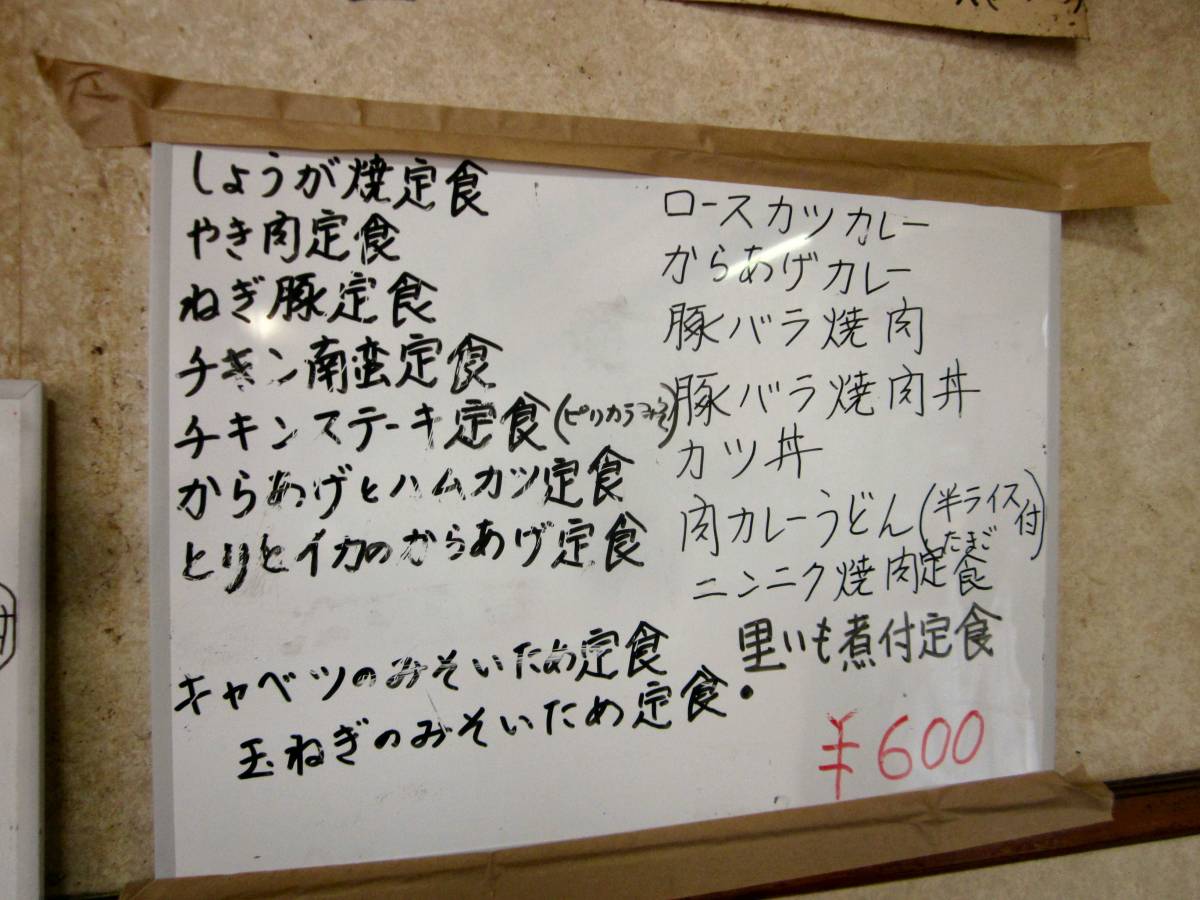 しょうが焼定食
やき肉定食
ねぎ豚定食
チキン南蛮定食
チキンステーキ定食(ピリカラみそ)
からあげとハムカツ定食
とりとイカのからあげ定食
キャベツのみそいため定食
玉ねぎのみそいため定食・
ロースカツカレー
からあげカレー
豚バラ焼肉
豚バラ焼肉丼
カツ丼
肉カレーうどん(半ライスたまご付)
ニンニク焼肉定食
里いも煮付定食
¥600